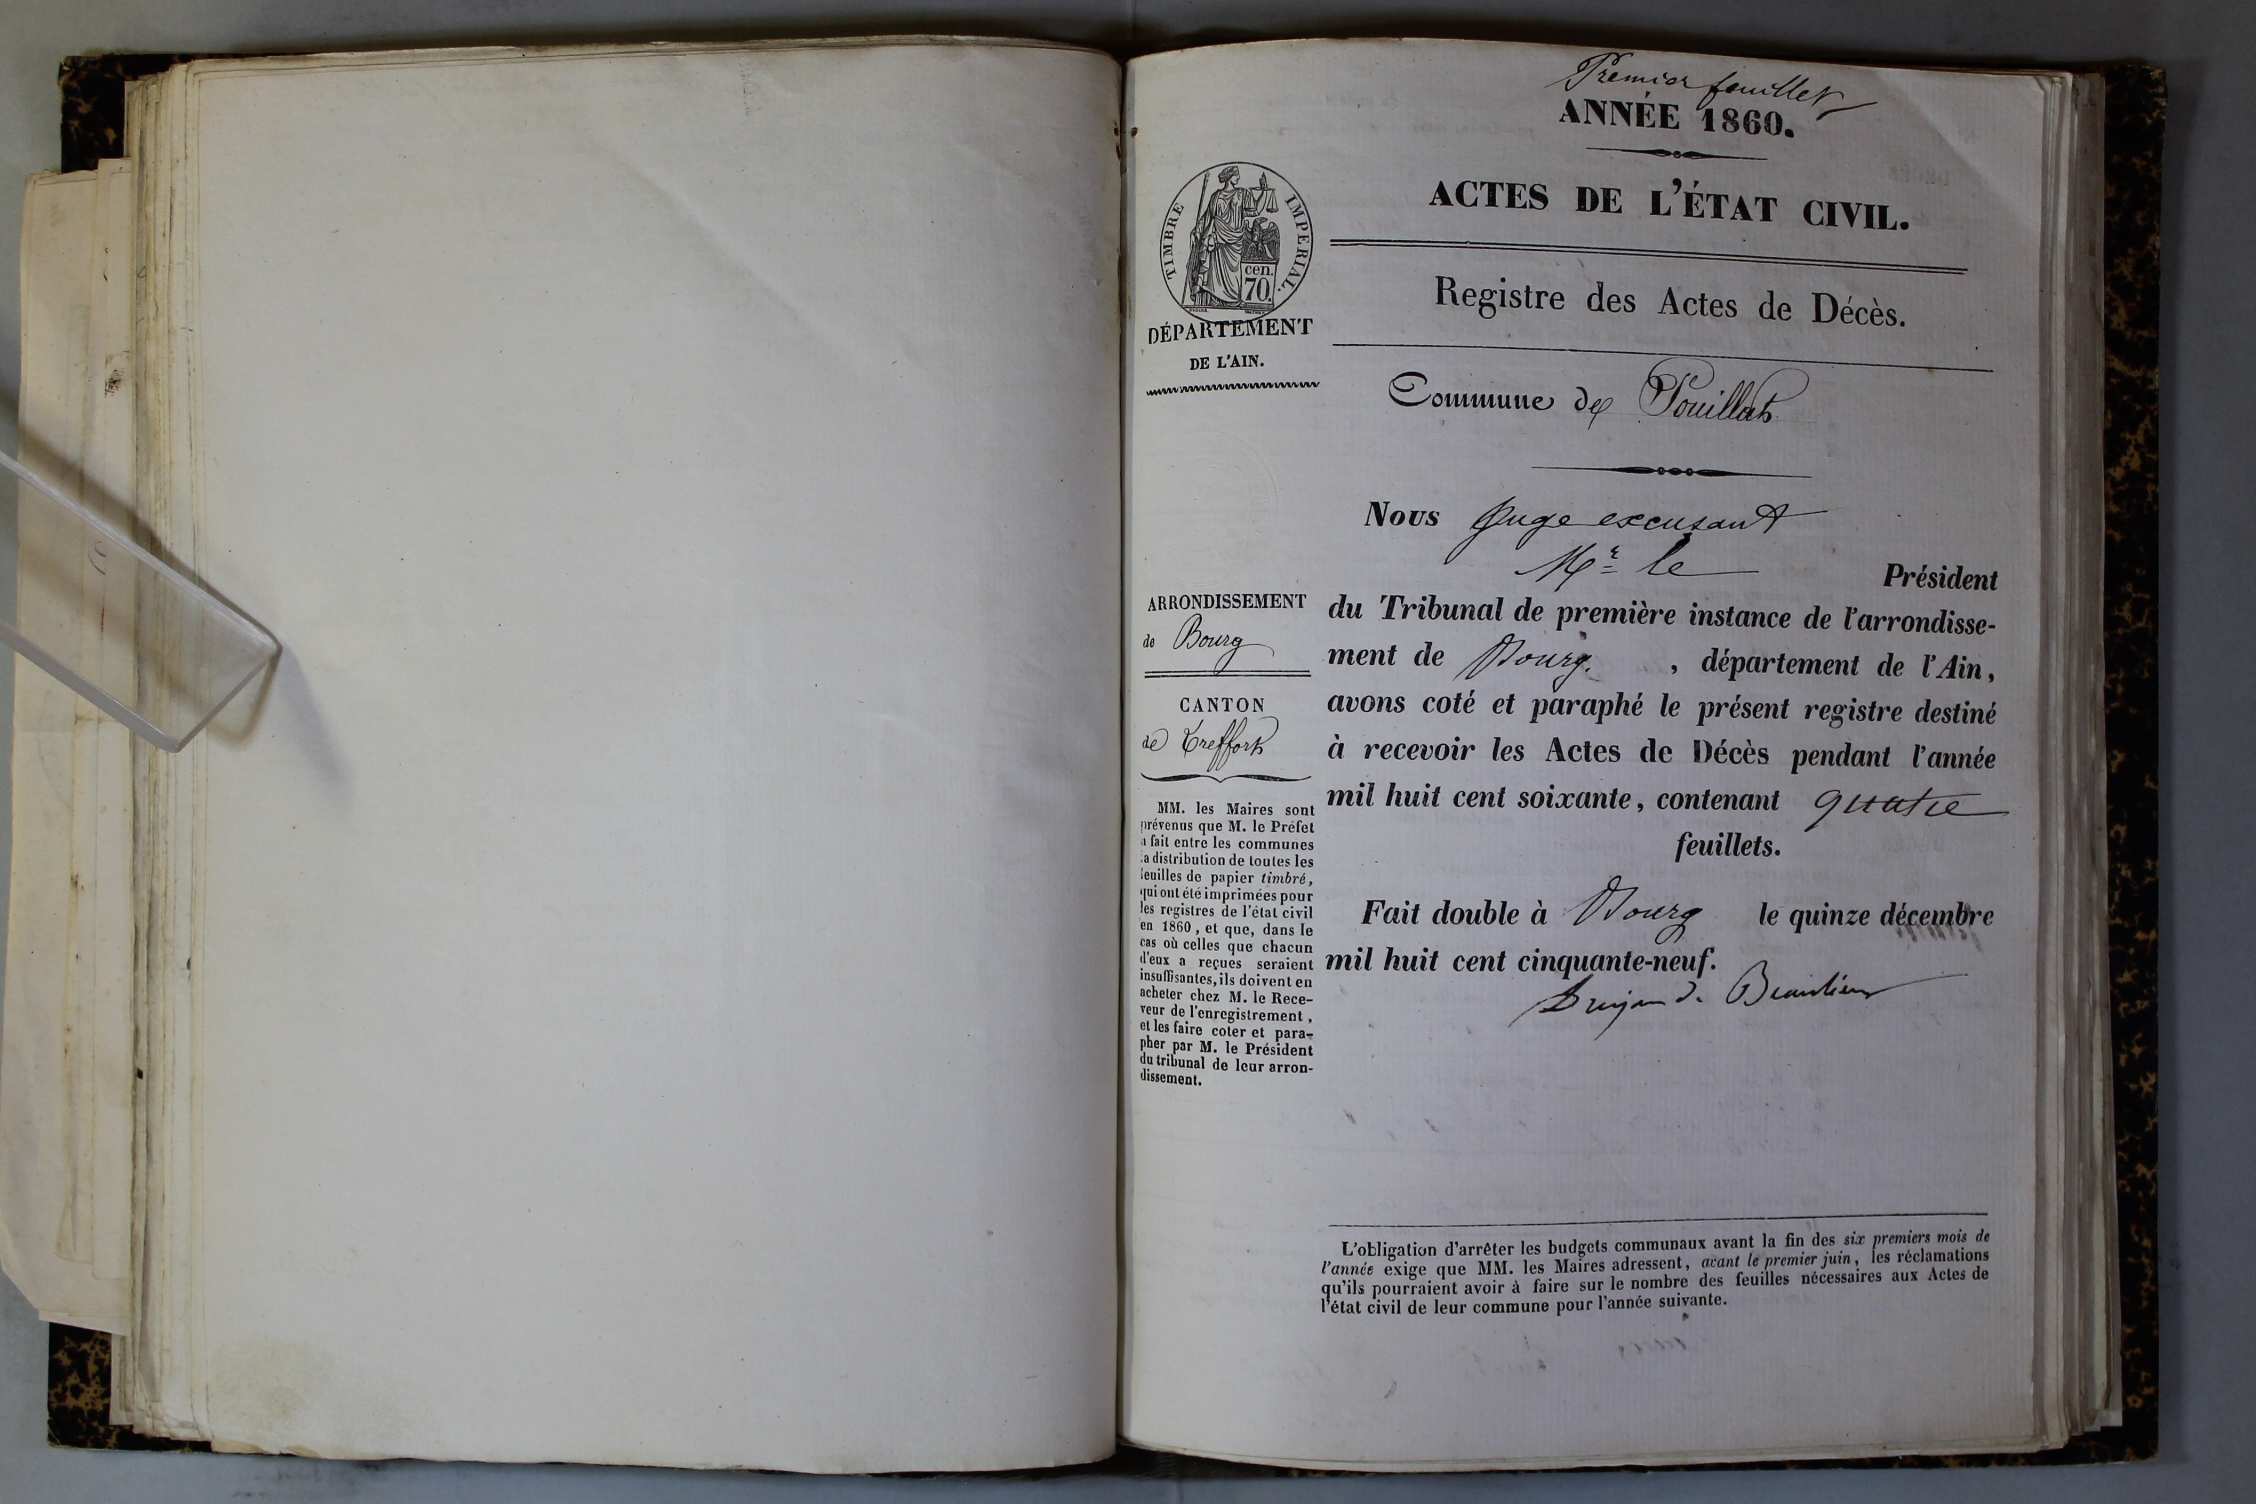 Premier feuillet
ANNÉE 1860.
ACTES DE L'ÉTAT CIVIL.
Registre des Actes de Décès.
TIMBRE IMPERIAL.
cen.
70.
DÉPARTEMENT
DE L'AIN.
Commune de Pouillat
Nous Juge excusant
Mr le Président
du Tribunal de première instance de l'arrondisse-
ment de Bourg. , département de l'Ain,
avons coté et paraphé le présent registre destiné
à recevoir les Actes de Décès pendant l'année
mil huit cent soixante, contenant quatre
feuillets.
Fait double à Bourg le quinze décembre
mil huit cent cinquante-neuf.
de Beaulieu
ARRONDISSEMENT
de Bourg
CANTON
de Treffort
MM. les Maires sont
prévenus que M. le Préfet
a fait entre les communes
la distribution de toutes les
feuilles de papier timbré,
qui ont été imprimées pour
les registres de l'état civil
en 1860, et que, dans le
cas où celles que chacun
d'eux a reçues seraient
insuffisantes, ils doivent en
acheter chez M. le Rece-
veur de l'enregistrement,
et les faire coter et para-
pher par M. le Président
du tribunal de leur arron-
dissement.
L'obligation d'arrêter les budgets communaux avant la fin des six premiers mois de
l'année exige que MM. les Maires adressent, avant le premier juin, les réclamations
qu'ils pourraient avoir à faire sur le nombre des feuilles nécessaires aux Actes de
l'état civil de leur commune pour l'année suivante.